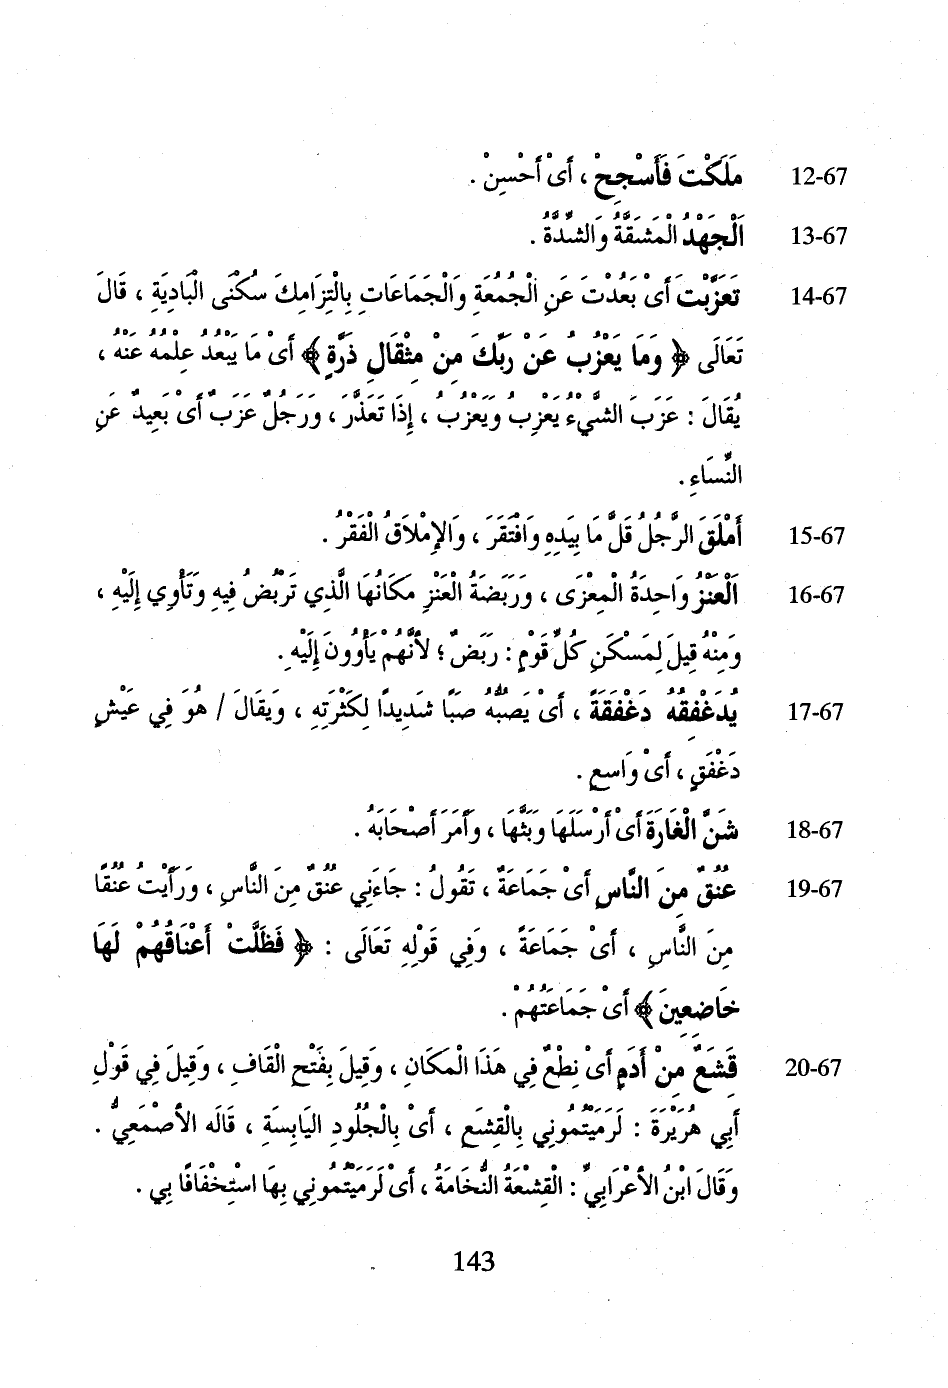 12-67 مَلَكْتَ فَأَسْجِحْ ، أَىْ أَحْسِنْ .
13-67 الْجَهْدُ الْمَشَقَّةُ وَالشِّدَّةُ .
14-67 تَعَزَّبْتَ أَىْ بَعُدْتَ عَنِ الْجُمُعَةِ وَالْجَمَاعَاتِ بِالْتِزَامِكَ سُكْنَى الْبَادِيَةِ ، قَالَ
تَعَالَى ﴿ وَمَا يَعْزُبُ عَنْ رَبِّكَ مِنْ مِثْقَالِ ذَرَّةٍ ﴾ أَىْ مَا يَبْعُدُ عِلْمُهُ عَنْهُ ،
يُقَالَ : عَزَبَ الشَّيْءُ يَعْزِبُ وَيَعْزُبُ ، إِذَا تَعَذَّرَ ، وَرَجُلٌ عَزَبٌ أَىْ بَعِيدٌ عَنِ
النِّسَاءِ .
15-67 أَمْلَقَ الرَّجُلُ قَلَّ مَا بِيَدِهِ وَافْتَقَرَ ، وَالإِمْلَاقُ الْفَقْرُ .
16-67 الْعَنْزُ وَاحِدَةُ الْمِعْزَى ، وَرَبَضَةُ الْعَنْزِ مَكَانُهَا الَّذِي تَرْبُضُ فِيهِ وَتَأْوِي إِلَيْهِ ،
وَمِنْهُ قِيلَ لِمَسْكَنِ كُلِّ قَوْمٍ : رَبَضٌ ؛ لأَنَّهُمْ يَأْوُونَ إِلَيْهِ .
17-67 يُدَغْفِقُهُ دَغْفَقَةً ، أَىْ يَصُبُّهُ صَبًّا شَدِيداً لِكَثْرَتِهِ ، وَيُقَالَ / هُوَ فِي عَيْشٍ
دَغْفَقٍ ، أَىْ وَاسِعٍ .
18-67 شَنَّ الْغَارَةَ أَىْ أَرْسَلَهَا وَبَثَّهَا ، وَأَمَرَ أَصْحَابَهُ .
19-67 عُنُقٌ مِنَ النَّاسِ أَىْ جَمَاعَةٌ ، تَقُولُ : جَاءَنِي عُنُقٌ مِنَ النَّاسِ ، وَرَأَيْتُ عُنُقًا
مِنَ النَّاسِ ، أَىْ جَمَاعَةً ، وَفِي قَوْلِهِ تَعَالَى : ﴿ فَظَلَّتْ أَعْنَاقُهُمْ لَهَا
خَاضِعِينَ ﴾ أَىْ جَمَاعَتُهُمْ .
20-67 قَشَعٌ مِنْ أَدَمٍ أَىْ نِطْعٌ فِي هَذَا الْمَكَانِ ، وَقِيلَ بِفَتْحِ الْقَافِ ، وَقِيلَ فِي قَوْلِ
أَبِي هُرَيْرَةَ : لَرَمَيْتُمُونِي بِالْقِشَعِ ، أَىْ بِالْجُلُودِ الْيَابِسَةِ ، قَالَه الأَصْمَعِيُّ .
وَقَالَ ابْنُ الأَعْرَابِيِّ : الْقِشْعَةُ النُّخَامَةُ ، أَىْ لَرَمَيْتُمُونِي بِهَا اسْتِخْفَافًا بِي .
143